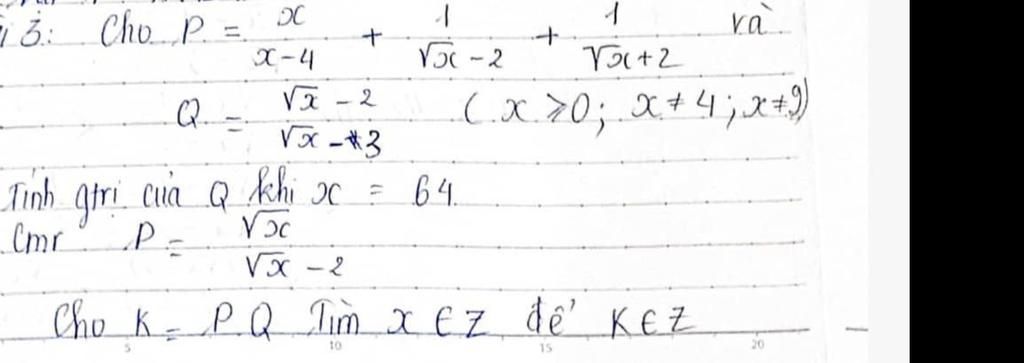 3: Cho P = x/(x-4) + 1/(√x -2) + 1/(√x+2) và
Q = (√x -2)/(√x -3) (x ⩾ 0; x ≠ 4; x ≠ 9)
Tính gtri của Q khi x = 64.
Cmr P = √x/(√x -2)
Cho K = P.Q Tìm x ∈ Z để K ∈ Z
5 10 15 20